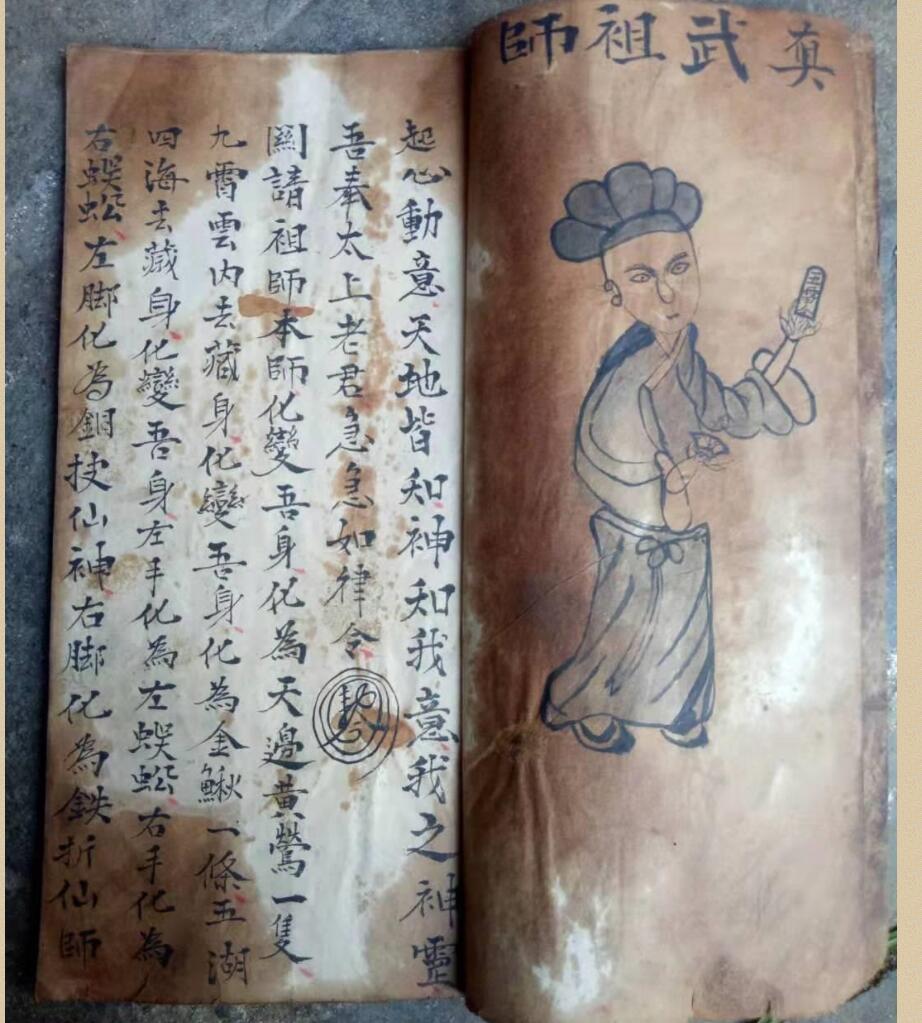 真武祖師
起心動意天地皆知神知我意我之神靈
吾奉太上老君急急如律令
關請祖師本師化變吾身化為天邊黃鶯一隻
九霄雲內去藏身化變吾身化為金鰍一條五湖
四海去藏身化變吾身左手化為左蜈蚣右手化為
右蜈蚣左脚化為銅扙仙神右脚化為鉄折仙師